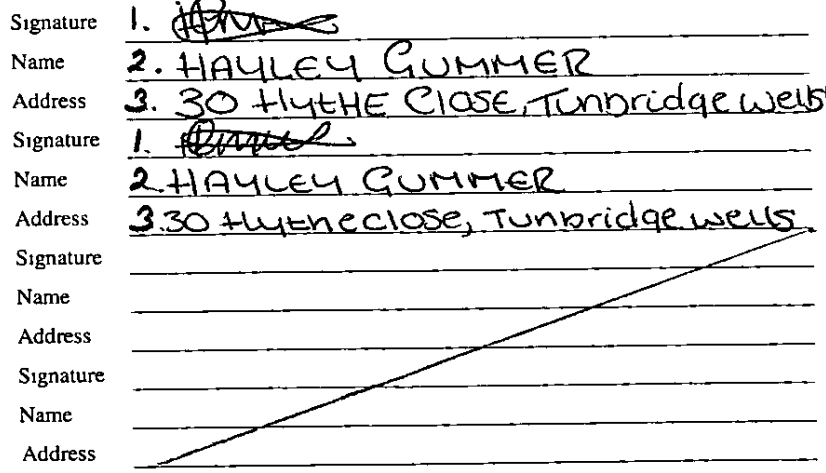 Signature 1.
Name 2. HAYLEY GUMMER
Address 3. 30 Hythe Close, Tunbridge wells
Signature 1.
Name 2. HAYLEY GUMMER
Address 3. 30 Hythe close, Tunbridge wells
Signature
Name
Address
Signature
Name
Address